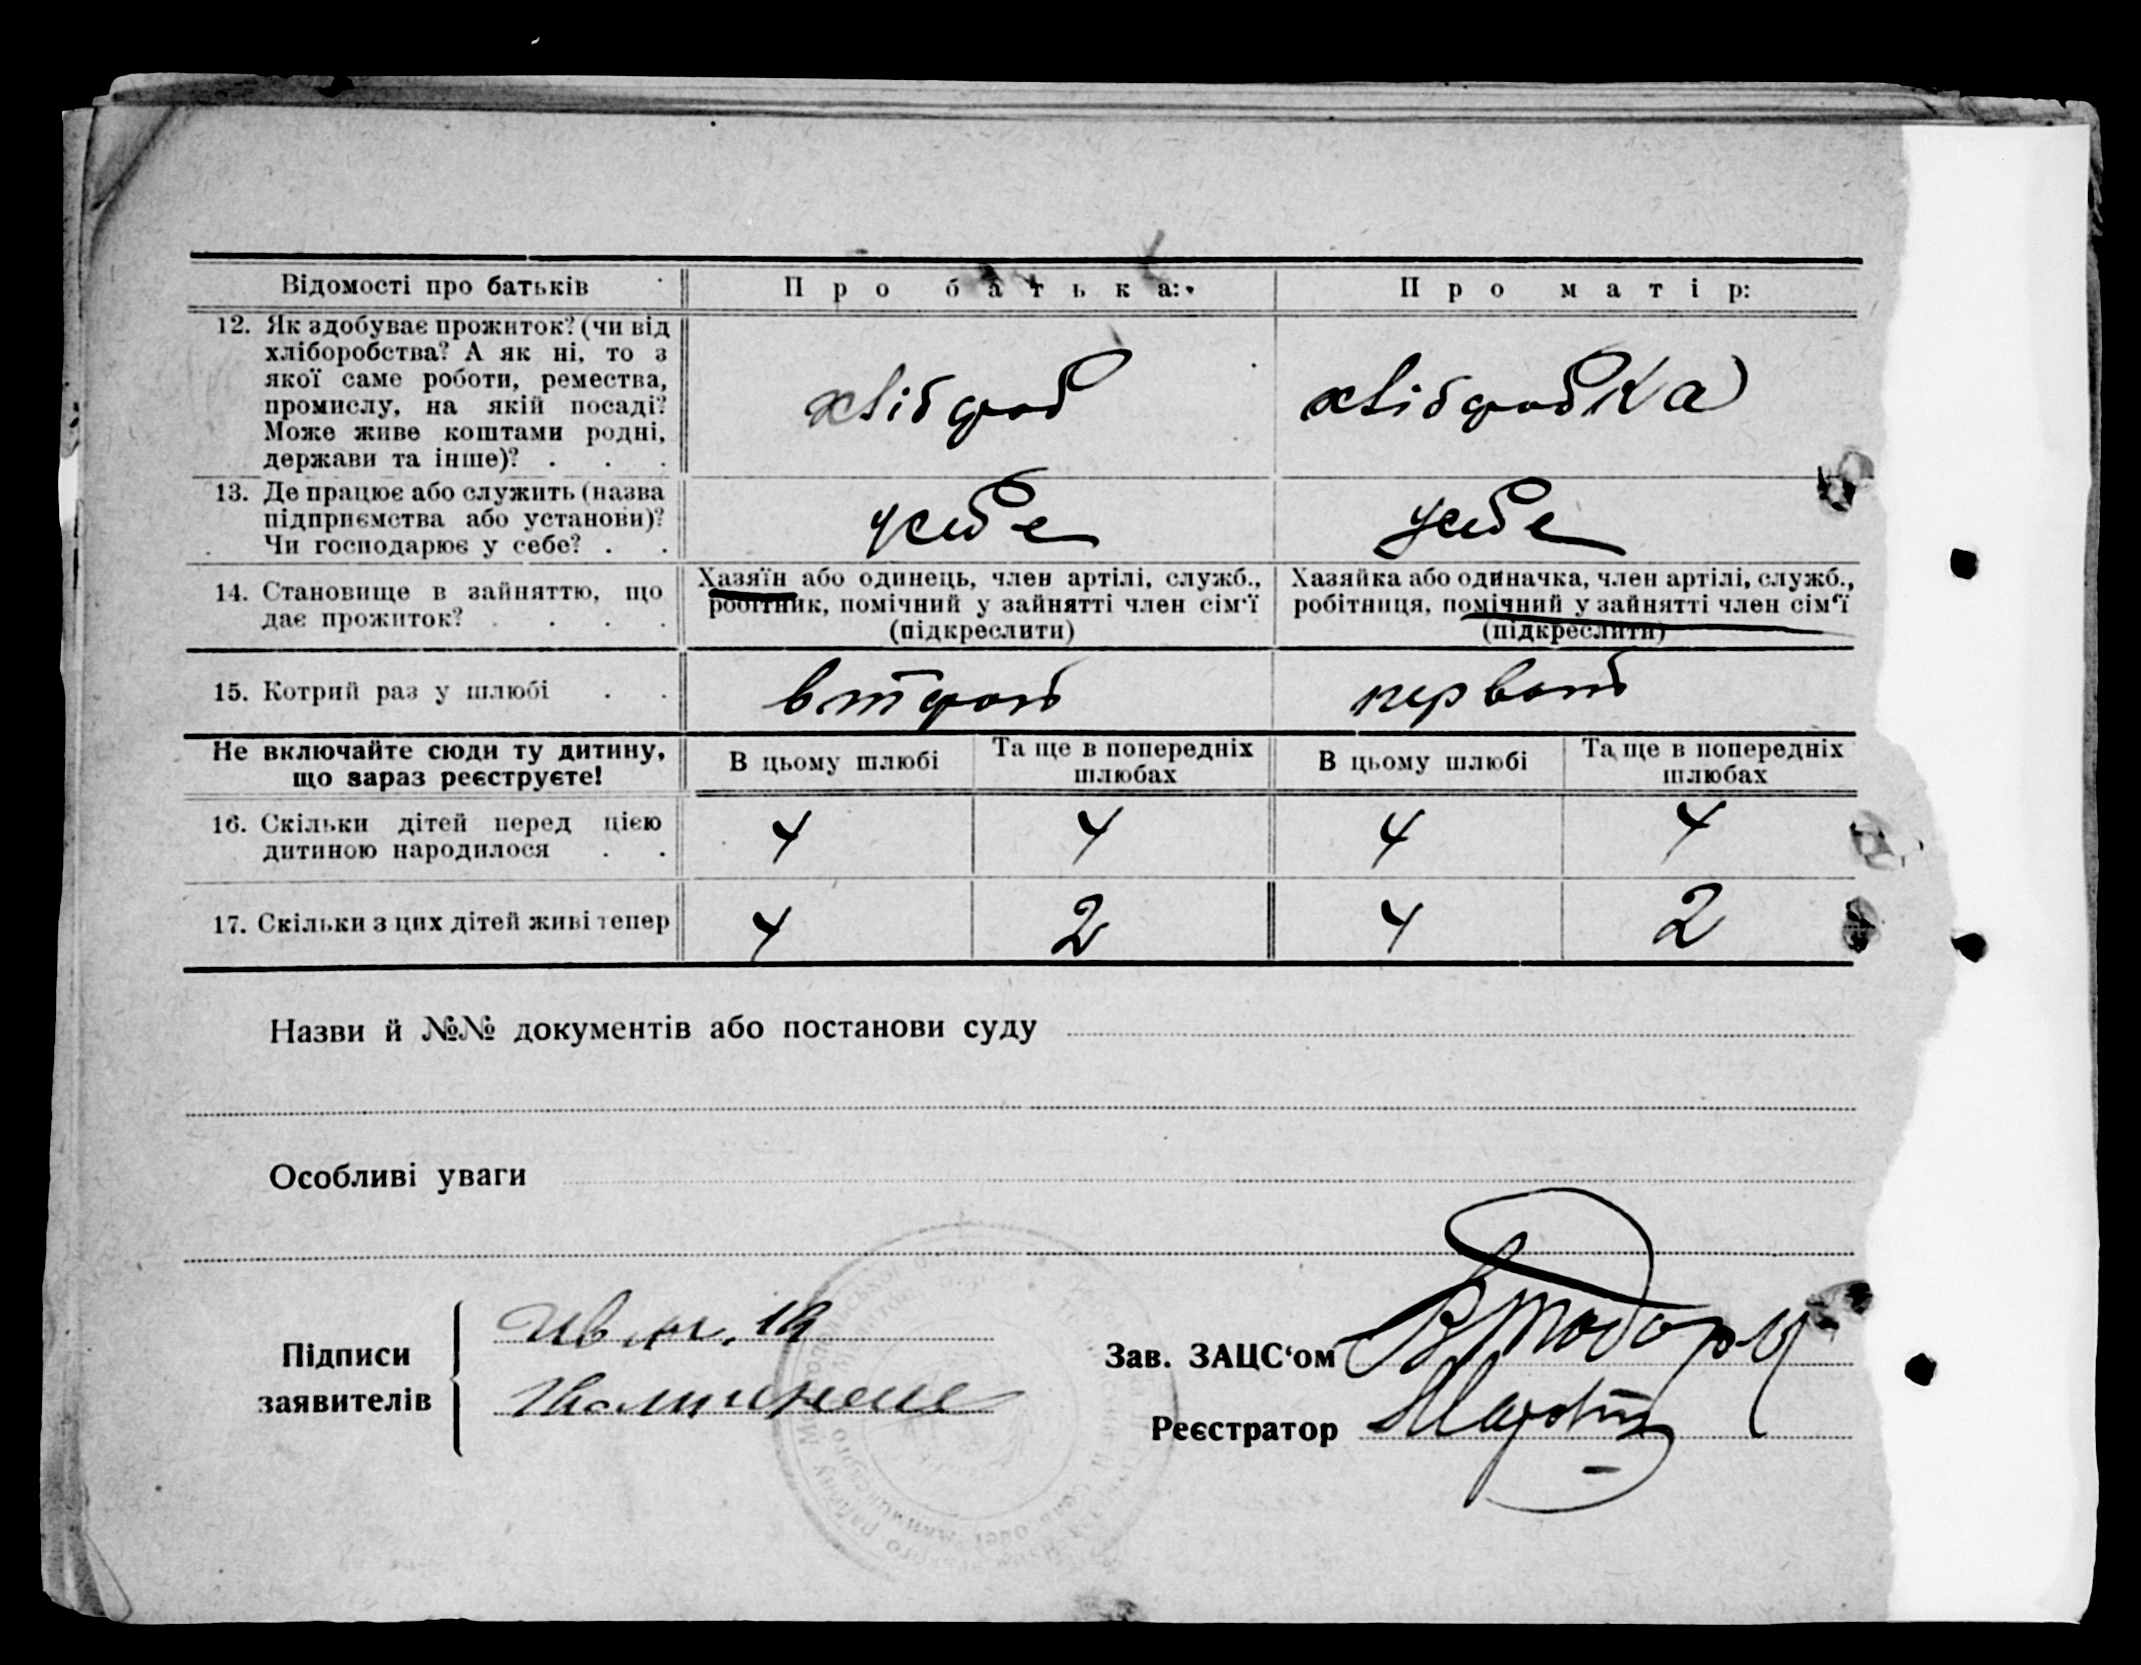 Відомості про батьків
Про батька:
Про матір:
12. Як здобуває прожиток? (чи від
хліборобства? А як ні, то з
якої саме роботи, ремества,
промислу, на якій посаді?
Може живе коштами родні,
держави та інше)? . . .
хлібороб
хліборобка
13. Де працює або служить (назва
підприємства або установи)?
Чи господарює у себе? . .
у себе
у себе
14. Становище в зайняттю, що
дає прожиток? . . . .
Хазяїн або одинець, член артілі, служб.,
робітник, помічний у зайнятті член сім'ї
(підкреслити)
Хазяйка або одиначка, член артілі, служб.,
робітниця, помічний у зайнятті член сім'ї
(підкреслити)
15. Котрий раз у шлюбі . .
второй
первой
Не включайте сюди ту дитину,
що зараз реєструєте!
В цьому шлюбі
Та ще в попередніх
шлюбах
В цьому шлюбі
Та ще в попередніх
шлюбах
16. Скільки дітей перед цією
дитиною народилося . .
4 4 4 4
17. Скільки з цих дітей живі тепер
4 2 4 2
Назви й №№ документів або постанови суду
Особливі уваги
Підписи
заявителів
Зав. ЗАЦС'ом
Реєстратор